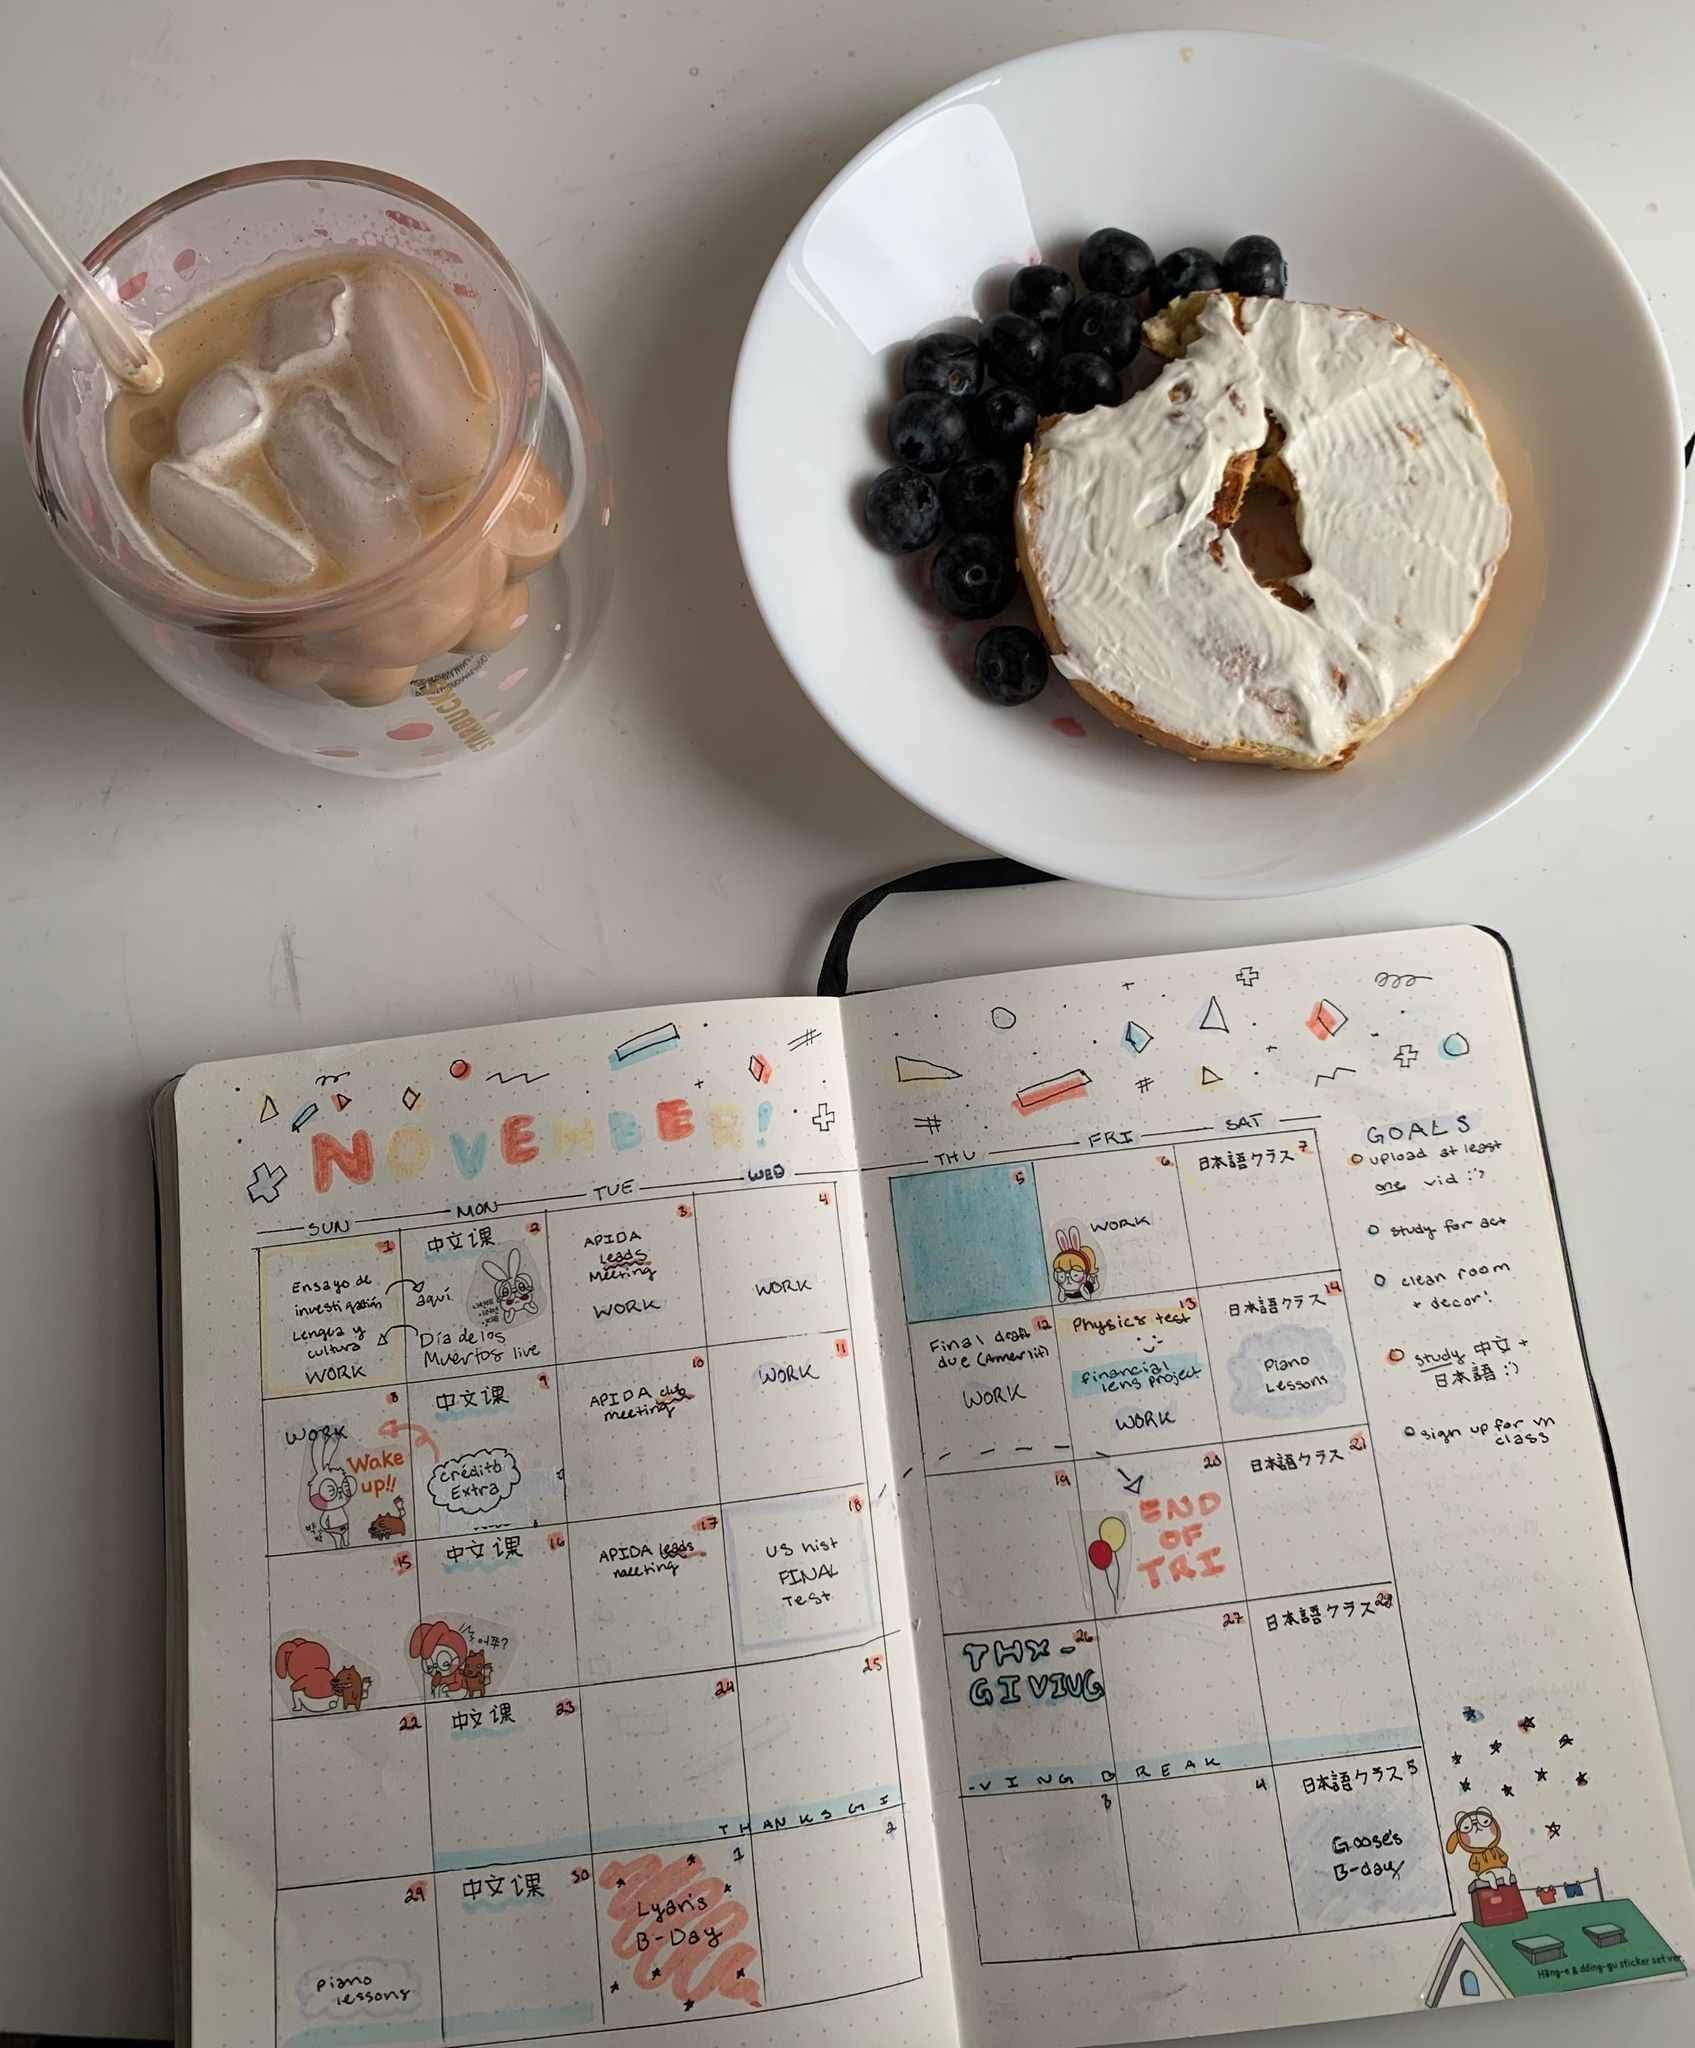 STARBUCKS
NOVEMBER!
SUN
MON
TUE
WED
THU
FRI
SAT
1
Ensayo de
investigación
Lengua y
cultura
WORK
2
中文课
aquí
Día de los
Muertos live
3
APIDA
leads
Meeting
WORK
4
WORK
5
6
WORK
7
日本語クラス
8
WORK
Wake
up!!
9
中文课
Crédito
Extra
10
APIDA club
meeting
11
WORK
12
Final draft
due (Amer lit)
WORK
13
Physics test
financial
lens project
WORK
14
日本語クラス
Piano
Lessons
15
16
中文课
어쭈?
17
APIDA leads
meeting
18
US hist
FINAL
Test
19
20
END
OF
TRI
21
日本語クラス
22
23
中文课
24
25
THANKSGI
26
THX-
GIVING
27
28
日本語クラス
-VING BREAK
29
piano
lessons
30
中文课
1
Lyan's
B-Day
2
3
4
5
日本語クラス
Goose's
B-day
GOALS
upload at least
one vid :)
study for act
clean room
+ decor!
study 中文 +
日本語 :)
sign up for vn
class
Häng-e & dding-gu sticker set ver.